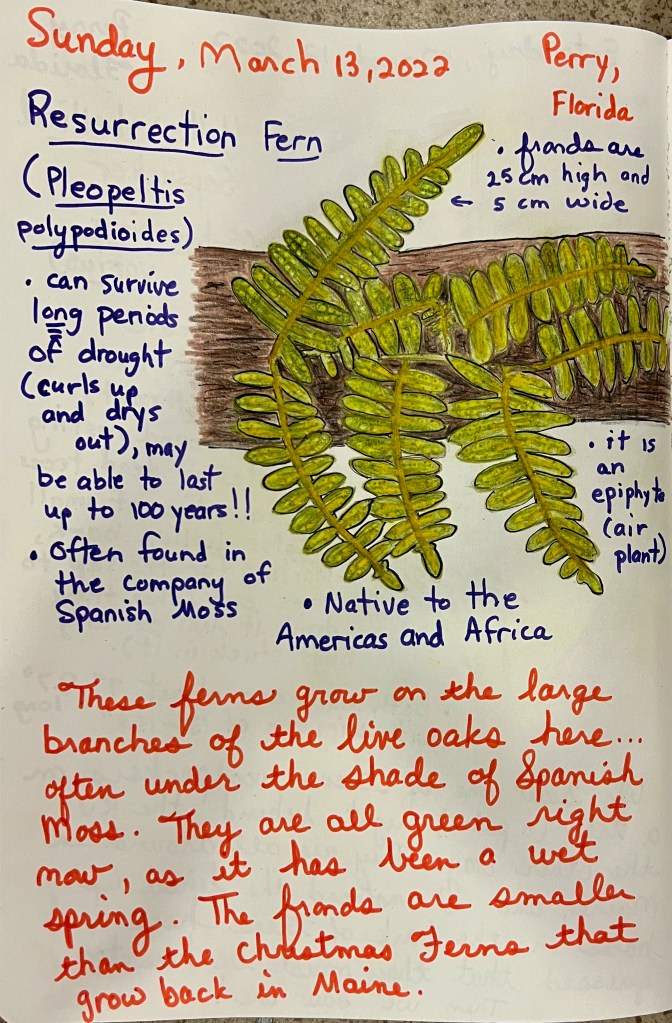 Sunday, March 13, 2022
Perry,
Florida
Resurrection Fern
(Pleopeltis
polypodioides)
• fronds are
25 cm high and
← 5 cm wide
• can survive
long periods
of drought
(curls up
and drys
out), may
be able to last
up to 100 years!!
• Often found in
the company of
Spanish Moss
• it is
an
epiphyte
(air
plant)
• Native to the
Americas and Africa
These ferns grow on the large
branches of the live oaks here...
often under the shade of Spanish
Moss. They are all green right
now, as it has been a wet
spring. The fronds are smaller
than the Christmas Ferns that
grow back in Maine.